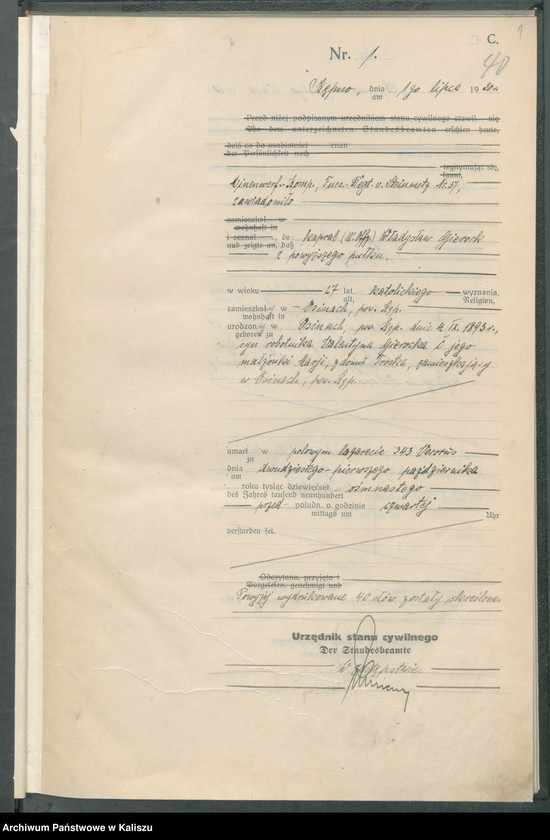 1
C.
Nr. 1.
40
Kępno, dnia 1go lipca 1920r.
am
Przed niżej podpisanym urzędnikiem stanu cywilnego stawił się
Vor dem unterzeichneten Standesbeamten erschien heute,
dziś co do osobistości znan
der Persönlichkeit nach
legitymując się,
kannt,
Minenwerf.-Komp., Inf. Regt. v. Steinmetz Nr. 57,
zawiadomiło
zamieszkał w
wohnhaft in
i zeznał, że kapral (U.Offz.) Władysław
und zeigte an, daß
z powyższego pułku,
w wieku 27 lat, katolickiego wyznania,
alt, Religion,
zamieszkały w Osinach, pow. Kęp.
wohnhaft in
urodzony w Osinach, pow. Kęp. dnia 4. IX. 1893 r.,
geboren zu
syn robotnika Walentyna i jego
małżonki Marji, z domu Troska, zamieszkający
w Osinach, pow. Kęp.
umarł w polowym lazarecie 343
zu
dnia dwudziestego-pierwszego października
am
roku tysiąc dziewięćset ośmnastego
des Jahres tausend neunhundert
przed połudn. o godzinie czwartej
mittags um Uhr
verstorben sei.
Odczytano, przyjęto i
Vorgelesen, genehmigt und
Powyżej wydrukowane 40 słów zostały skreślone
Urzędnik stanu cywilnego
Der Standesbeamte
w zastępstwie
Archiwum Państwowe w Kaliszu